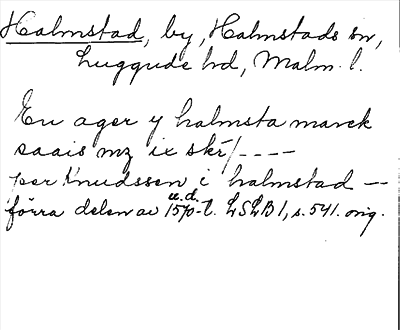 Halmstad, by, Halmstads sn,
Luggude hd, Malm. l.
En ager y halmsta marck
saais mz ix skr/----
per knudssen i halmstad --
u.d.
förra delen av 1570-t. LSLB 1, s. 541. orig.